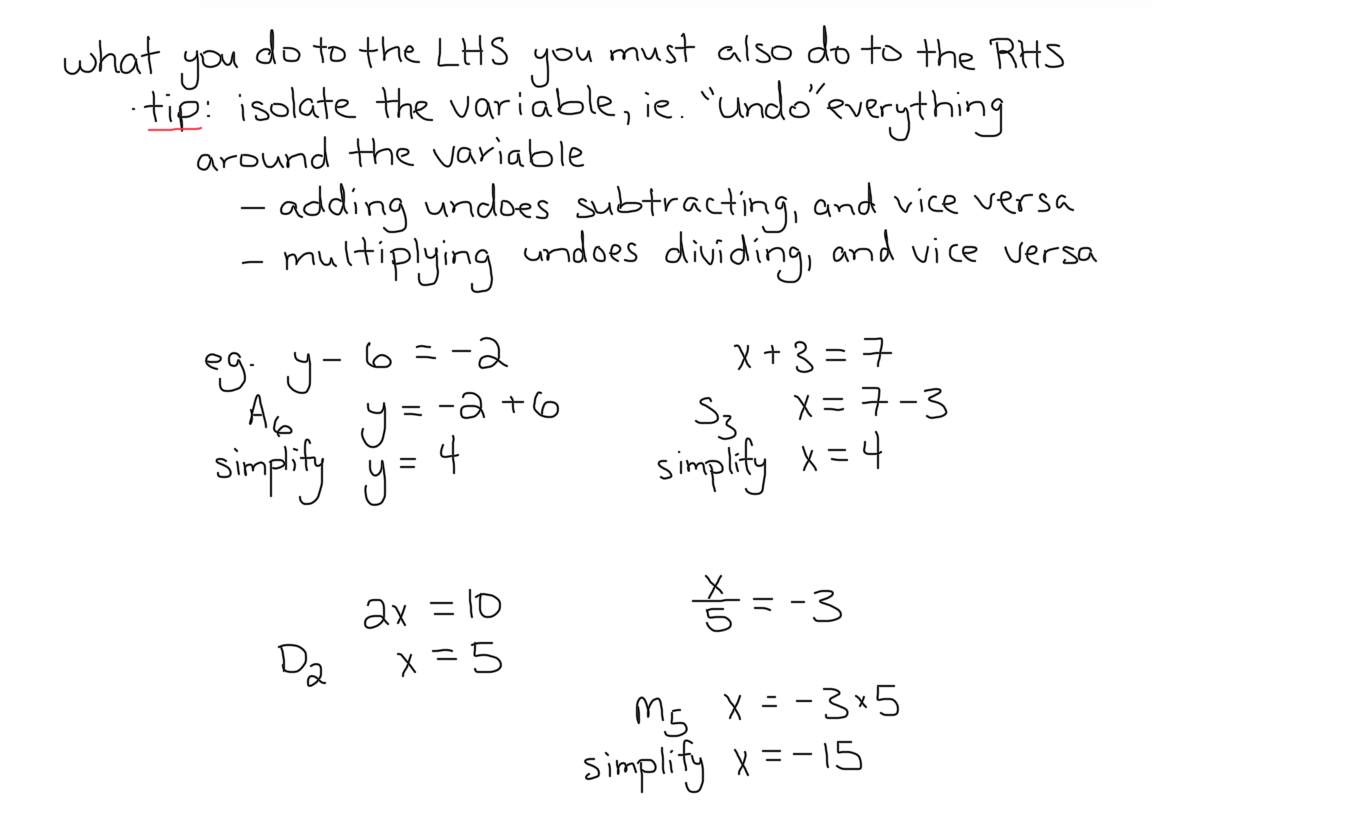 what you do to the LHS you must also do to the RHS
· tip: isolate the variable, ie. "undo" everything
around the variable
– adding undoes subtracting, and vice versa
– multiplying undoes dividing, and vice versa
eg. y – 6 = –2
A₆ y = –2 + 6
simplify y = 4
x + 3 = 7
S₃ x = 7 – 3
simplify x = 4
2x = 10
D₂ x = 5
x/5 = –3
M₅ x = –3 × 5
simplify x = –15